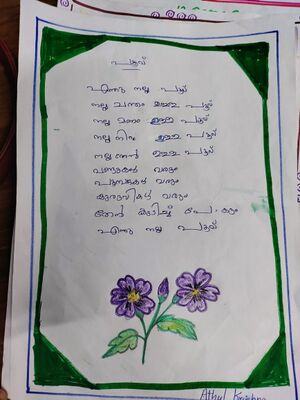 പൂവ്
എന്തു നല്ല പൂവ്
നല്ല ചന്തം ഉള്ള പൂവ്
നല്ല മണം ഉള്ള പൂവ്
നല്ല നിറം ഉള്ള പൂവ്
നല്ല തേൻ ഉള്ള പൂവ്
വണ്ടുകൾ വരും
പൂമ്പാറ്റകൾ വരും
കുരുവികൾ വരും
തേൻ കുടിച്ച് പോകും
എന്തു നല്ല പൂവ്
Athul Krishna